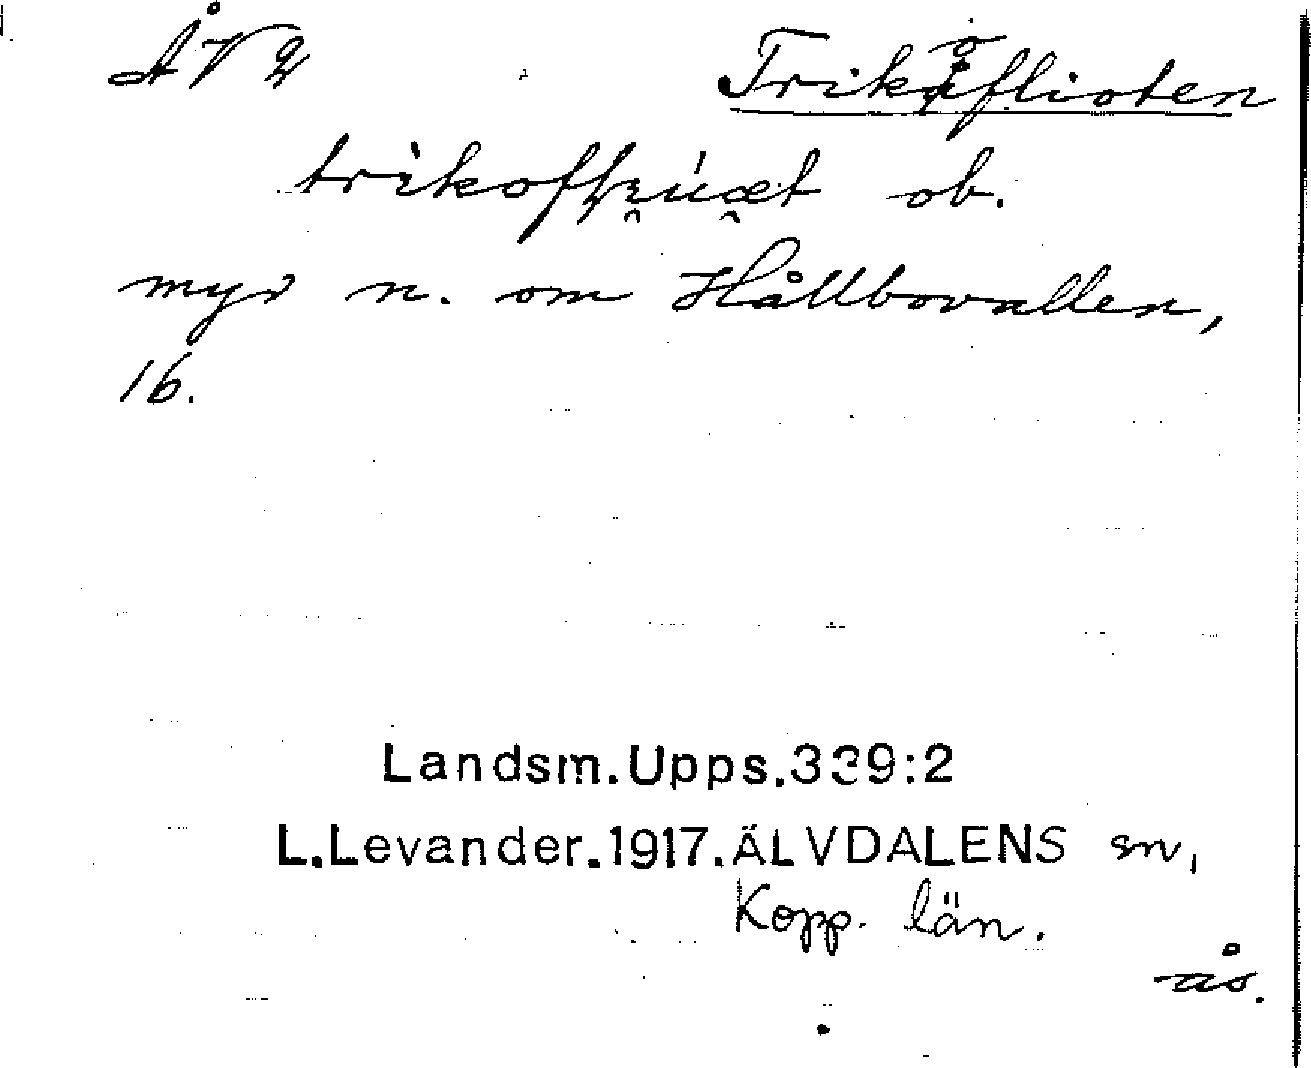 ÅV2 Trikåflioten
ob.
myr n. om Hållbovallen,
16.
Landsm.Upps.339:2
L.Levander.1917.ÄLVDALENS sn,
Kopp. län.
ås.